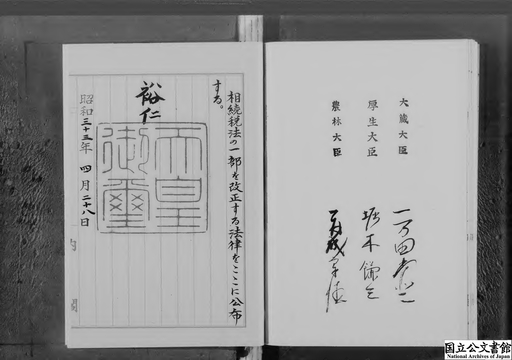 大蔵大臣 一万田尚登
厚生大臣 堀木鎌三
農林大臣 赤城宗徳
相続税法の一部を改正する法律をここに公布
する。
裕仁
天皇
御璽
昭和三十三年四月二十八日
国立公文書館
National Archives of Japan